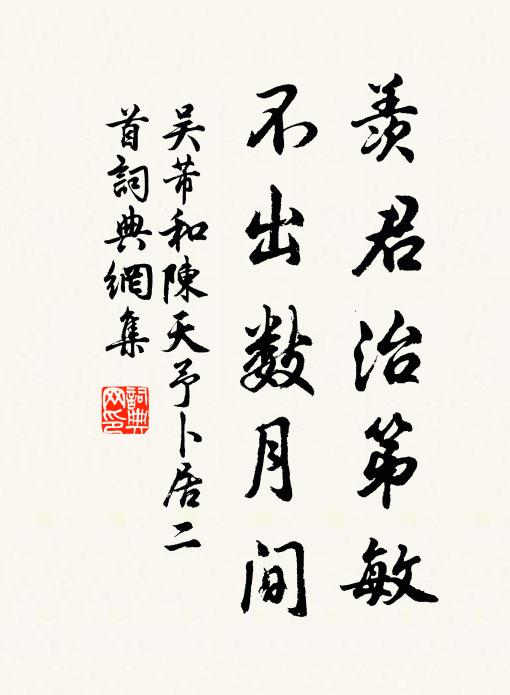 羡君治第敏
不出数月间
吴芾和陳天予卜居二
首詞典網集
詞典
网印